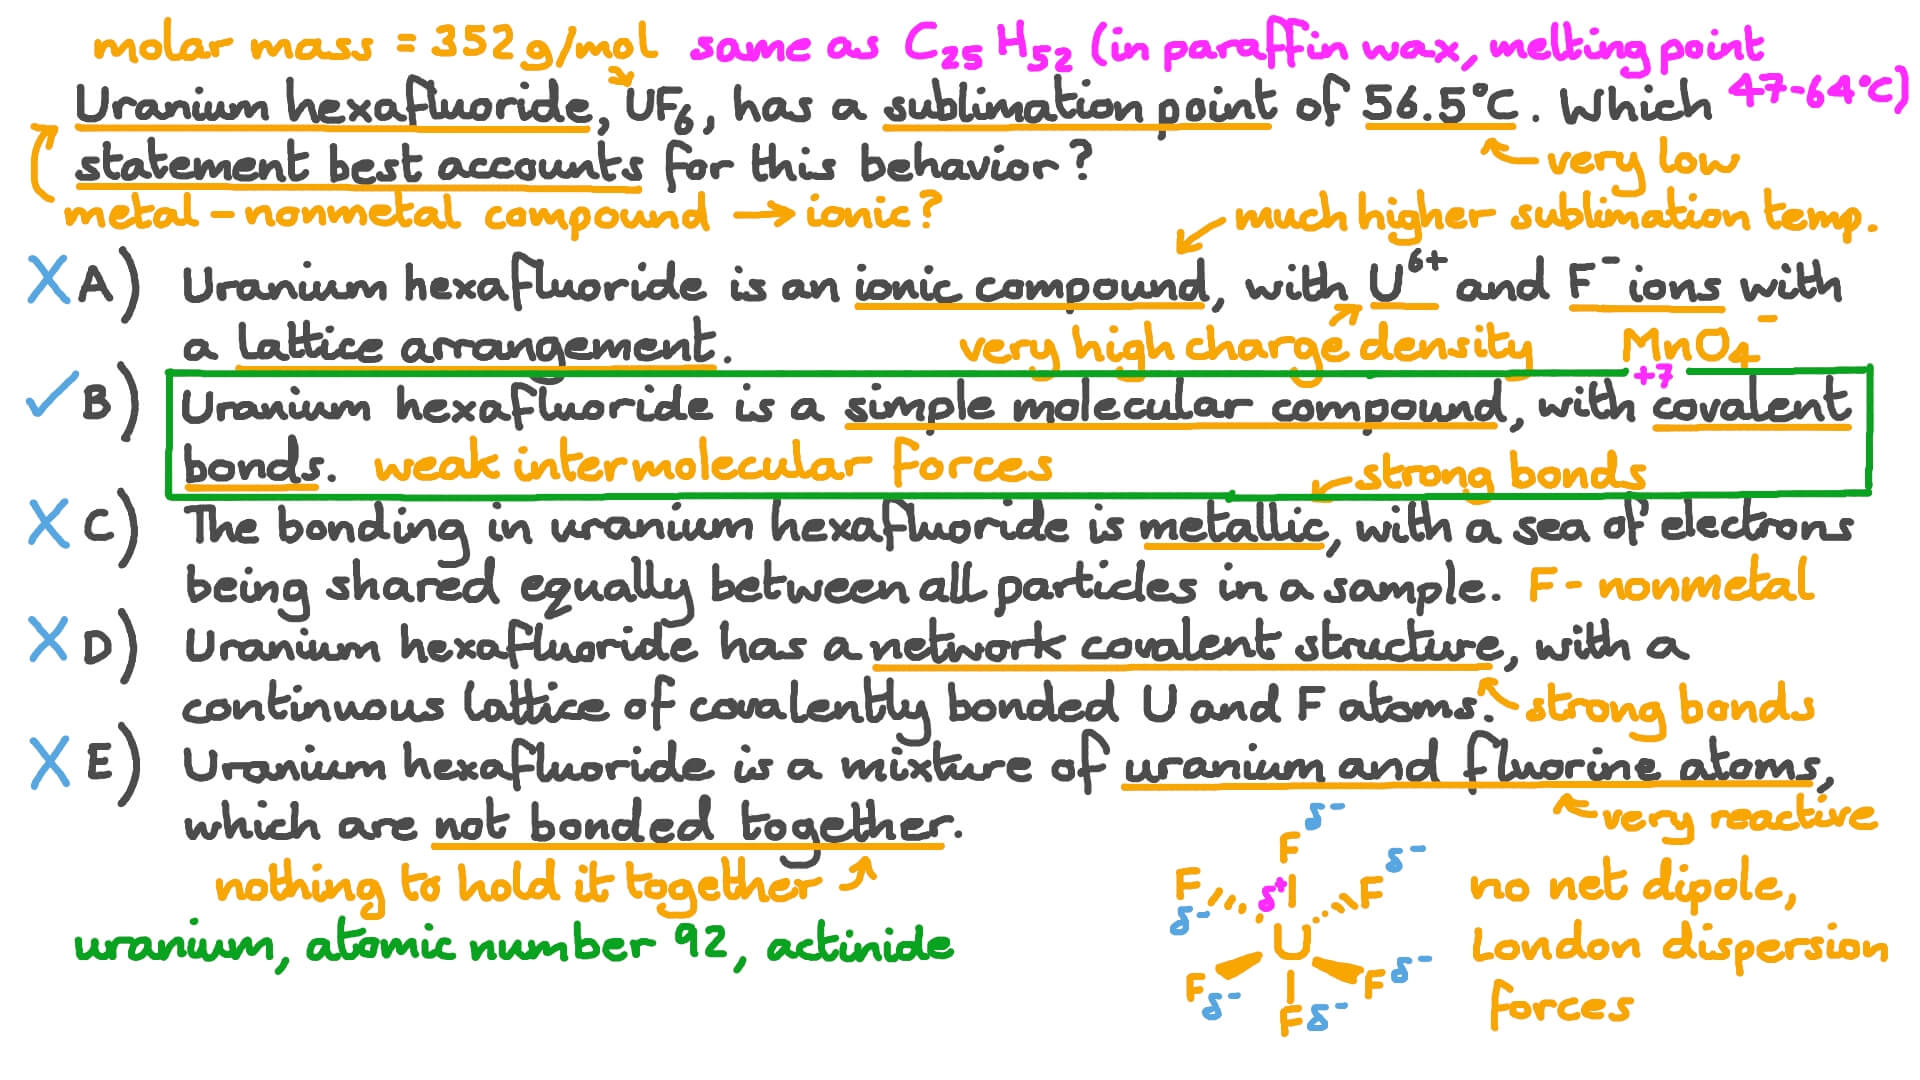 molar mass = 352 g/mol same as C₂₅H₅₂ (in paraffin wax, melting point
47-64°C)
Uranium hexafluoride, UF₆, has a sublimation point of 56.5°C. Which
statement best accounts for this behavior?
very low
metal - nonmetal compound → ionic?
much higher sublimation temp.
X A) Uranium hexafluoride is an ionic compound, with U⁶⁺ and F⁻ ions with
a lattice arrangement.
very high charge density
MnO₄⁻
+7
✓ B) Uranium hexafluoride is a simple molecular compound, with covalent
bonds. weak intermolecular forces
strong bonds
X C) The bonding in uranium hexafluoride is metallic, with a sea of electrons
being shared equally between all particles in a sample. F - nonmetal
X D) Uranium hexafluoride has a network covalent structure, with a
continuous lattice of covalently bonded U and F atoms. strong bonds
X E) Uranium hexafluoride is a mixture of uranium and fluorine atoms,
which are not bonded together.
very reactive
nothing to hold it together
uranium, atomic number 92, actinide
δ⁻
F δ⁻
F δ⁺ F
δ⁻
U
F F δ⁻
δ⁻ F δ⁻
no net dipole,
London dispersion
forces